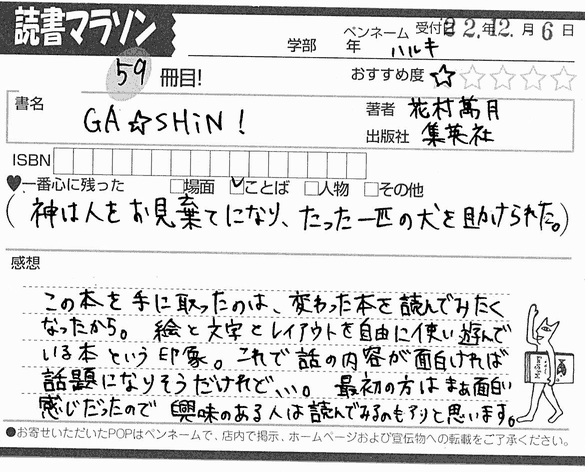 読書マラソン
学部 年 ペンネーム ハルキ 受付 22年12月6日
59 冊目! おすすめ度 ★☆☆☆☆
書名 GA☆SHiN! 著者 花村萬月
出版社 集英社
ISBN
♥一番心に残った □場面 ☑ことば □人物 □その他
(神は人をお見棄てになり、たった一匹の犬を助けられた。)
感想
この本を手に取ったのは、変わった本を読んでみたく
なったから。 絵と文字とレイアウトを自由に使い遊んで
いる本という印象。これで話の内容が面白ければ
話題になりそうだけれど、、、。 最初の方はまぁ面白い
感じだったので 興味のある人は読んでみるのもアリと思います。
●お寄せいただいたPOPはペンネームで、店内で掲示、ホームページおよび宣伝物への転載をご了承ください。